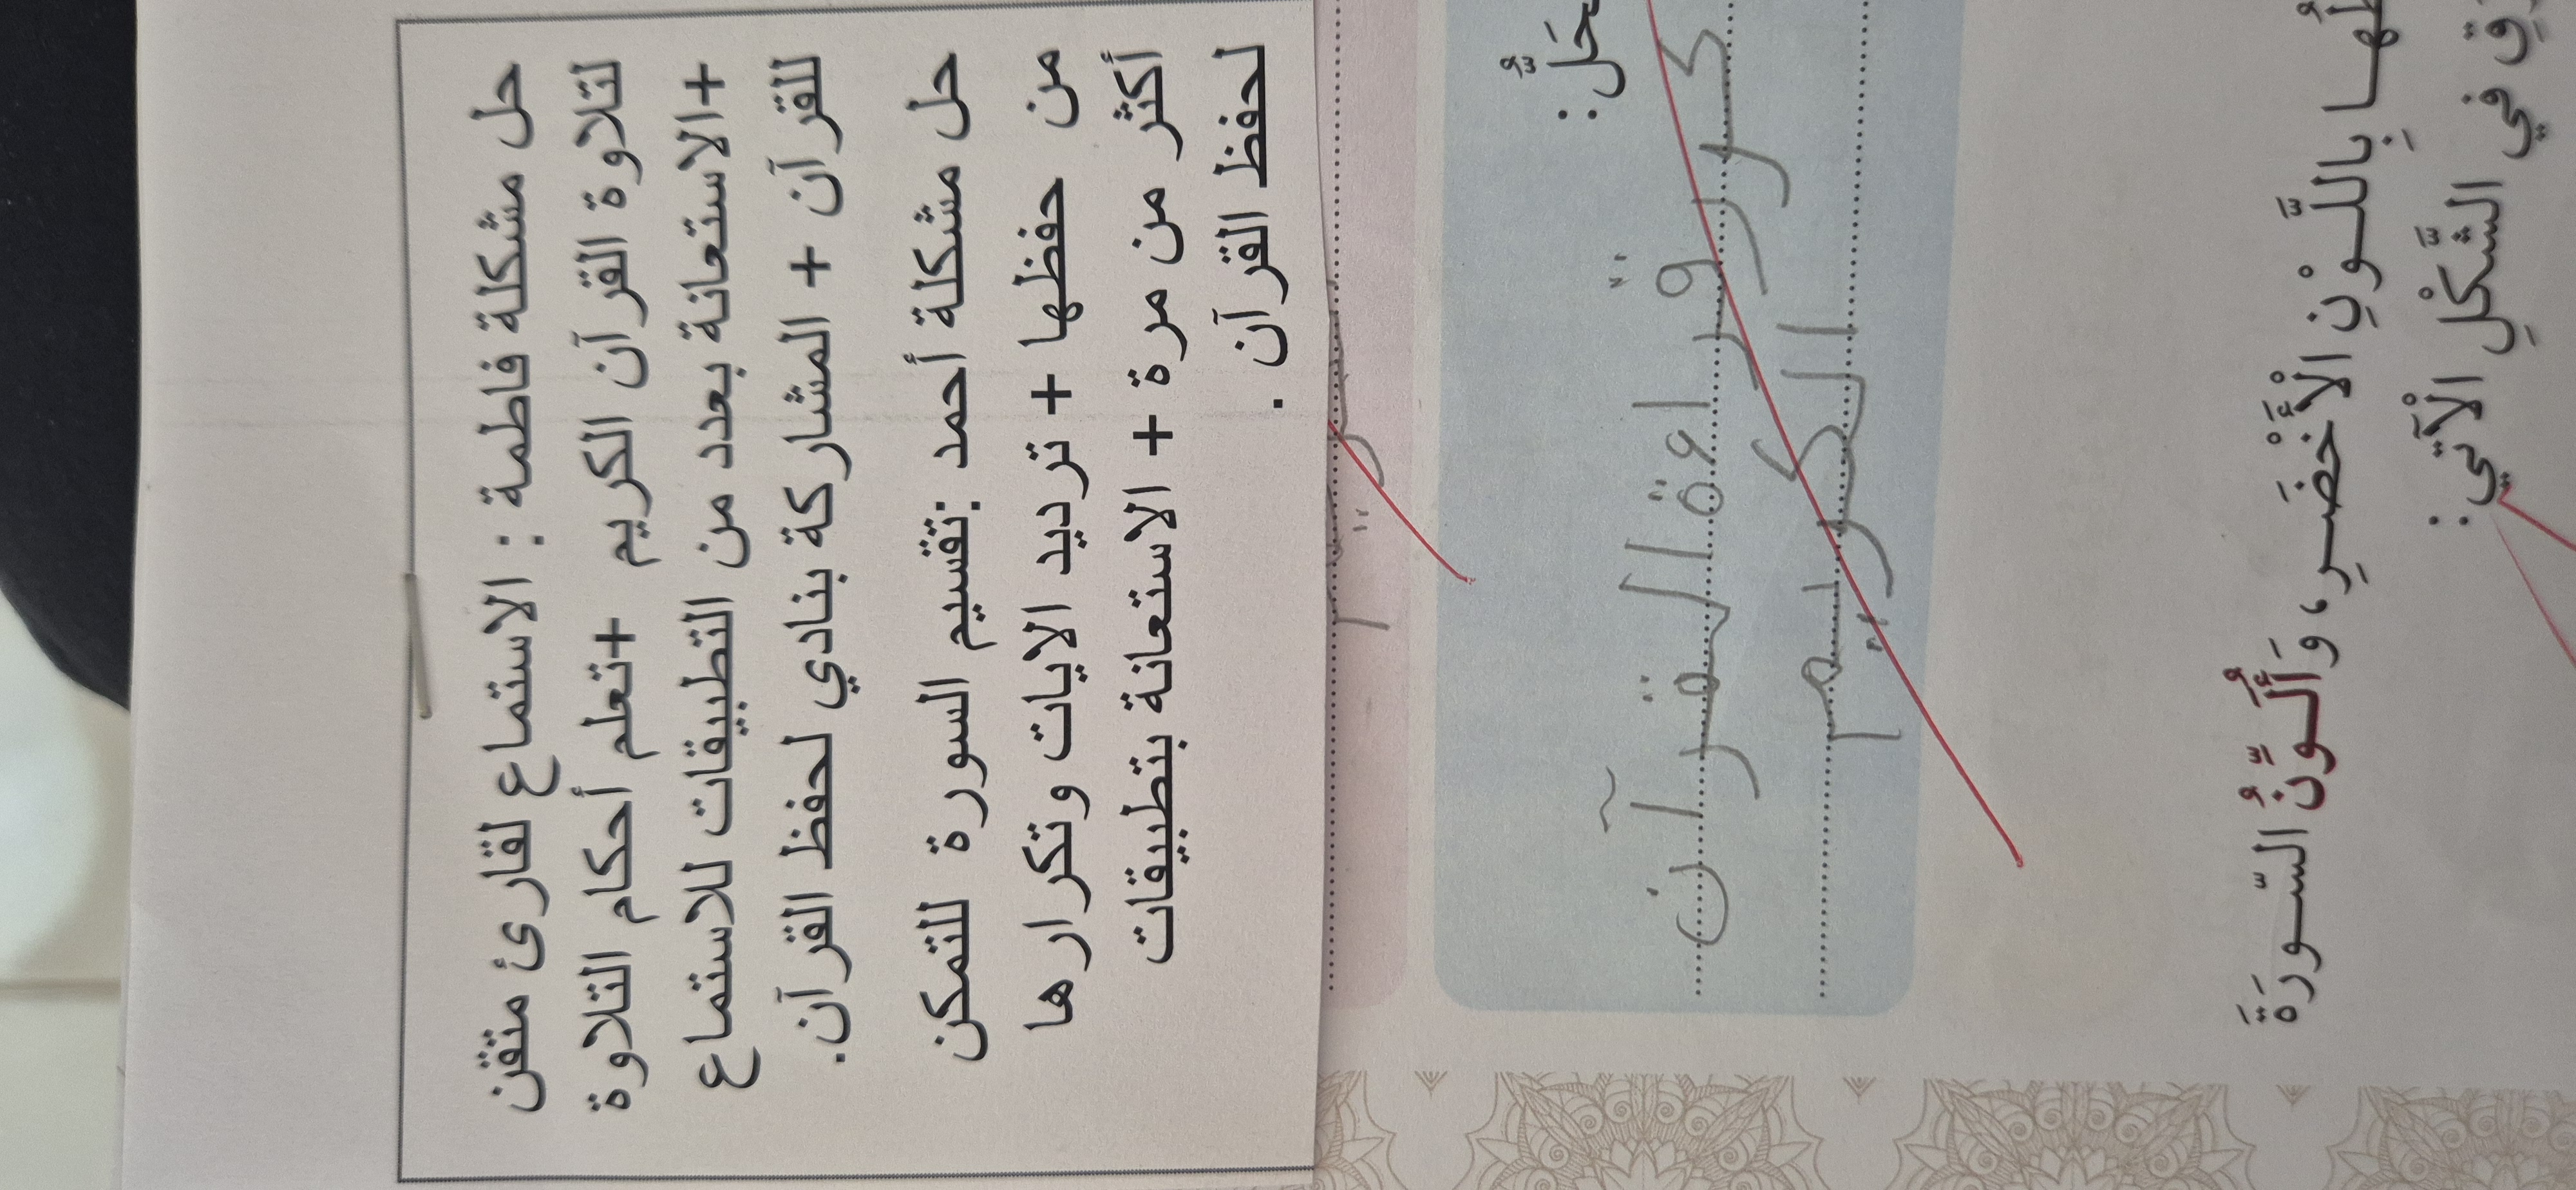 حل مشكلة فاطمة : الاستماع لقارئ متقن
لتلاوة القرآن الكريم +تعلم أحكام التلاوة
+الاستعانة بعدد من التطبيقات للاستماع
للقرآن + المشاركة بنادي لحفظ القرآن.
حل مشكلة أحمد :تقسيم السورة للتمكن
من حفظها + ترديد الايات وتكرارها
أكثر من مرة + الاستعانة بتطبيقات
لحفظ القرآن .
كرر قراءة القرآن
الكريم
بِاللَّوْنِ الْأَخْضَرِ، وَأُلَوِّنُ السّورَةَ
في الشَّكْلِ الْآتي: